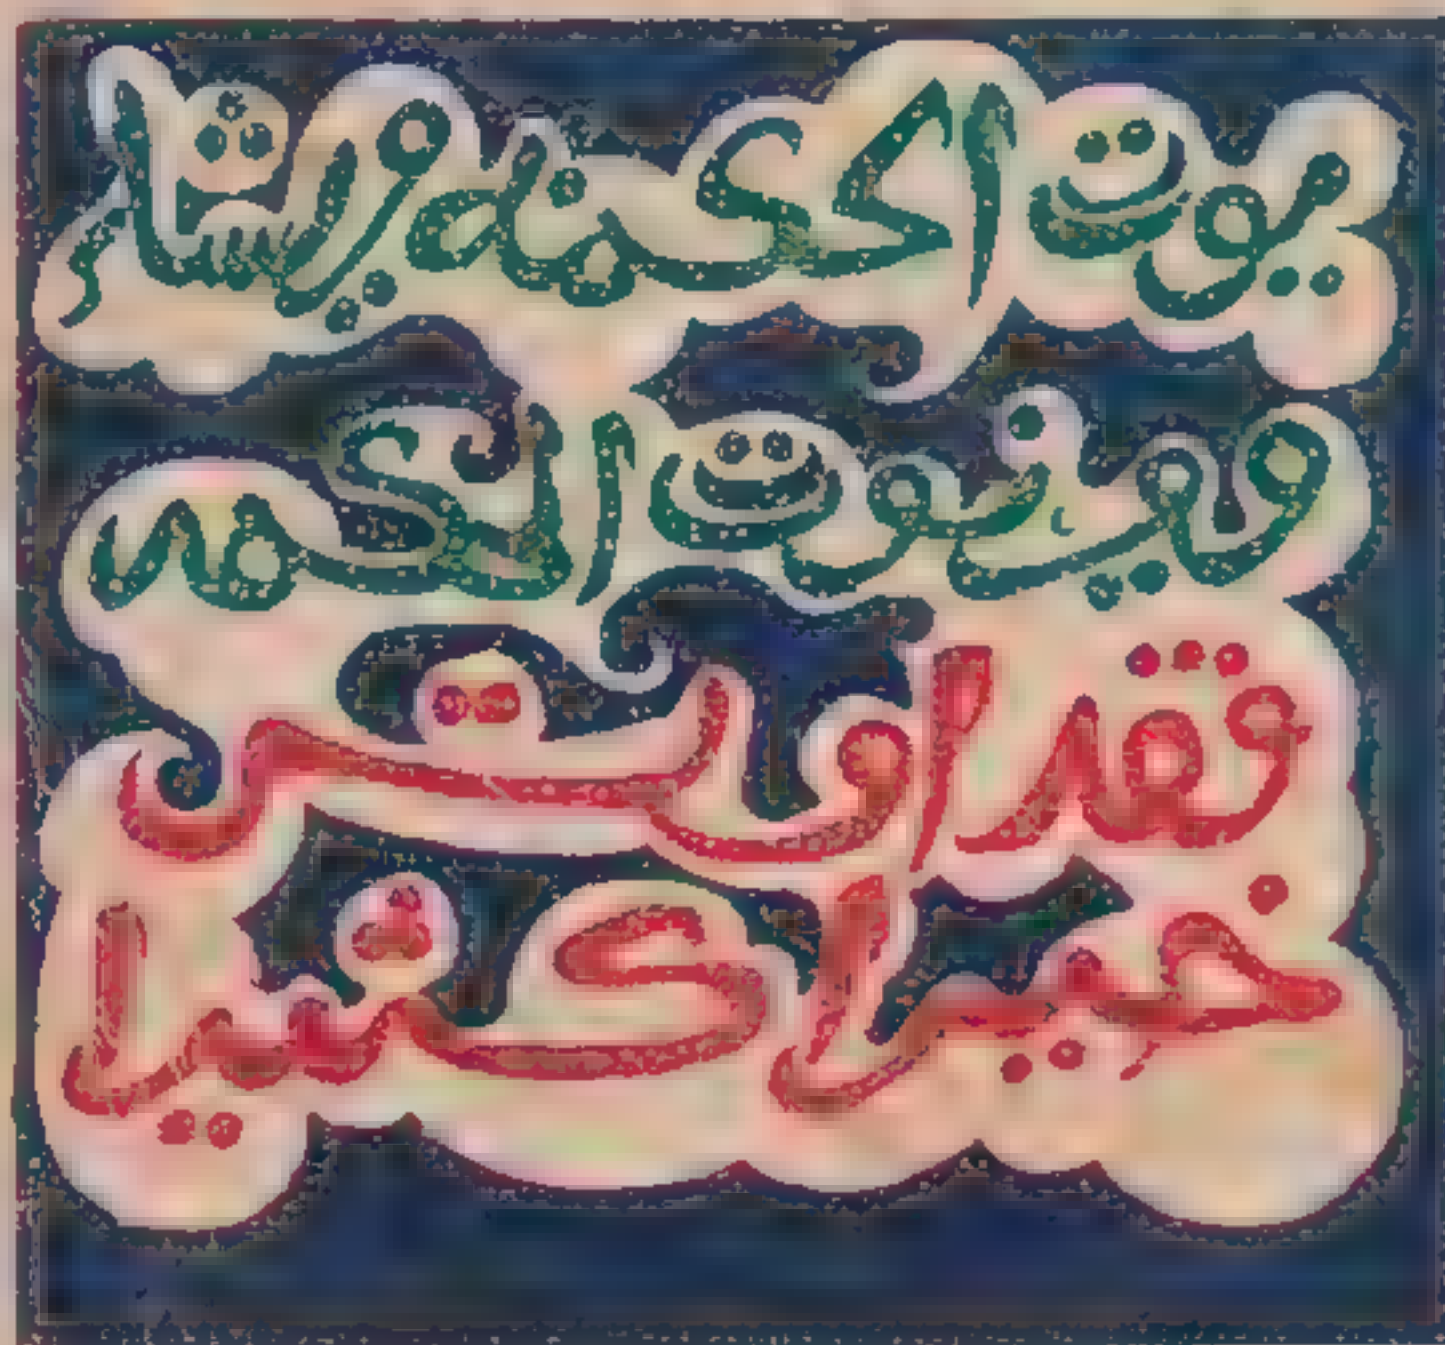 يوت الحكمة من يشاء
ومن يوت الحكمه
فقد اوتى
خيرا كثيرا